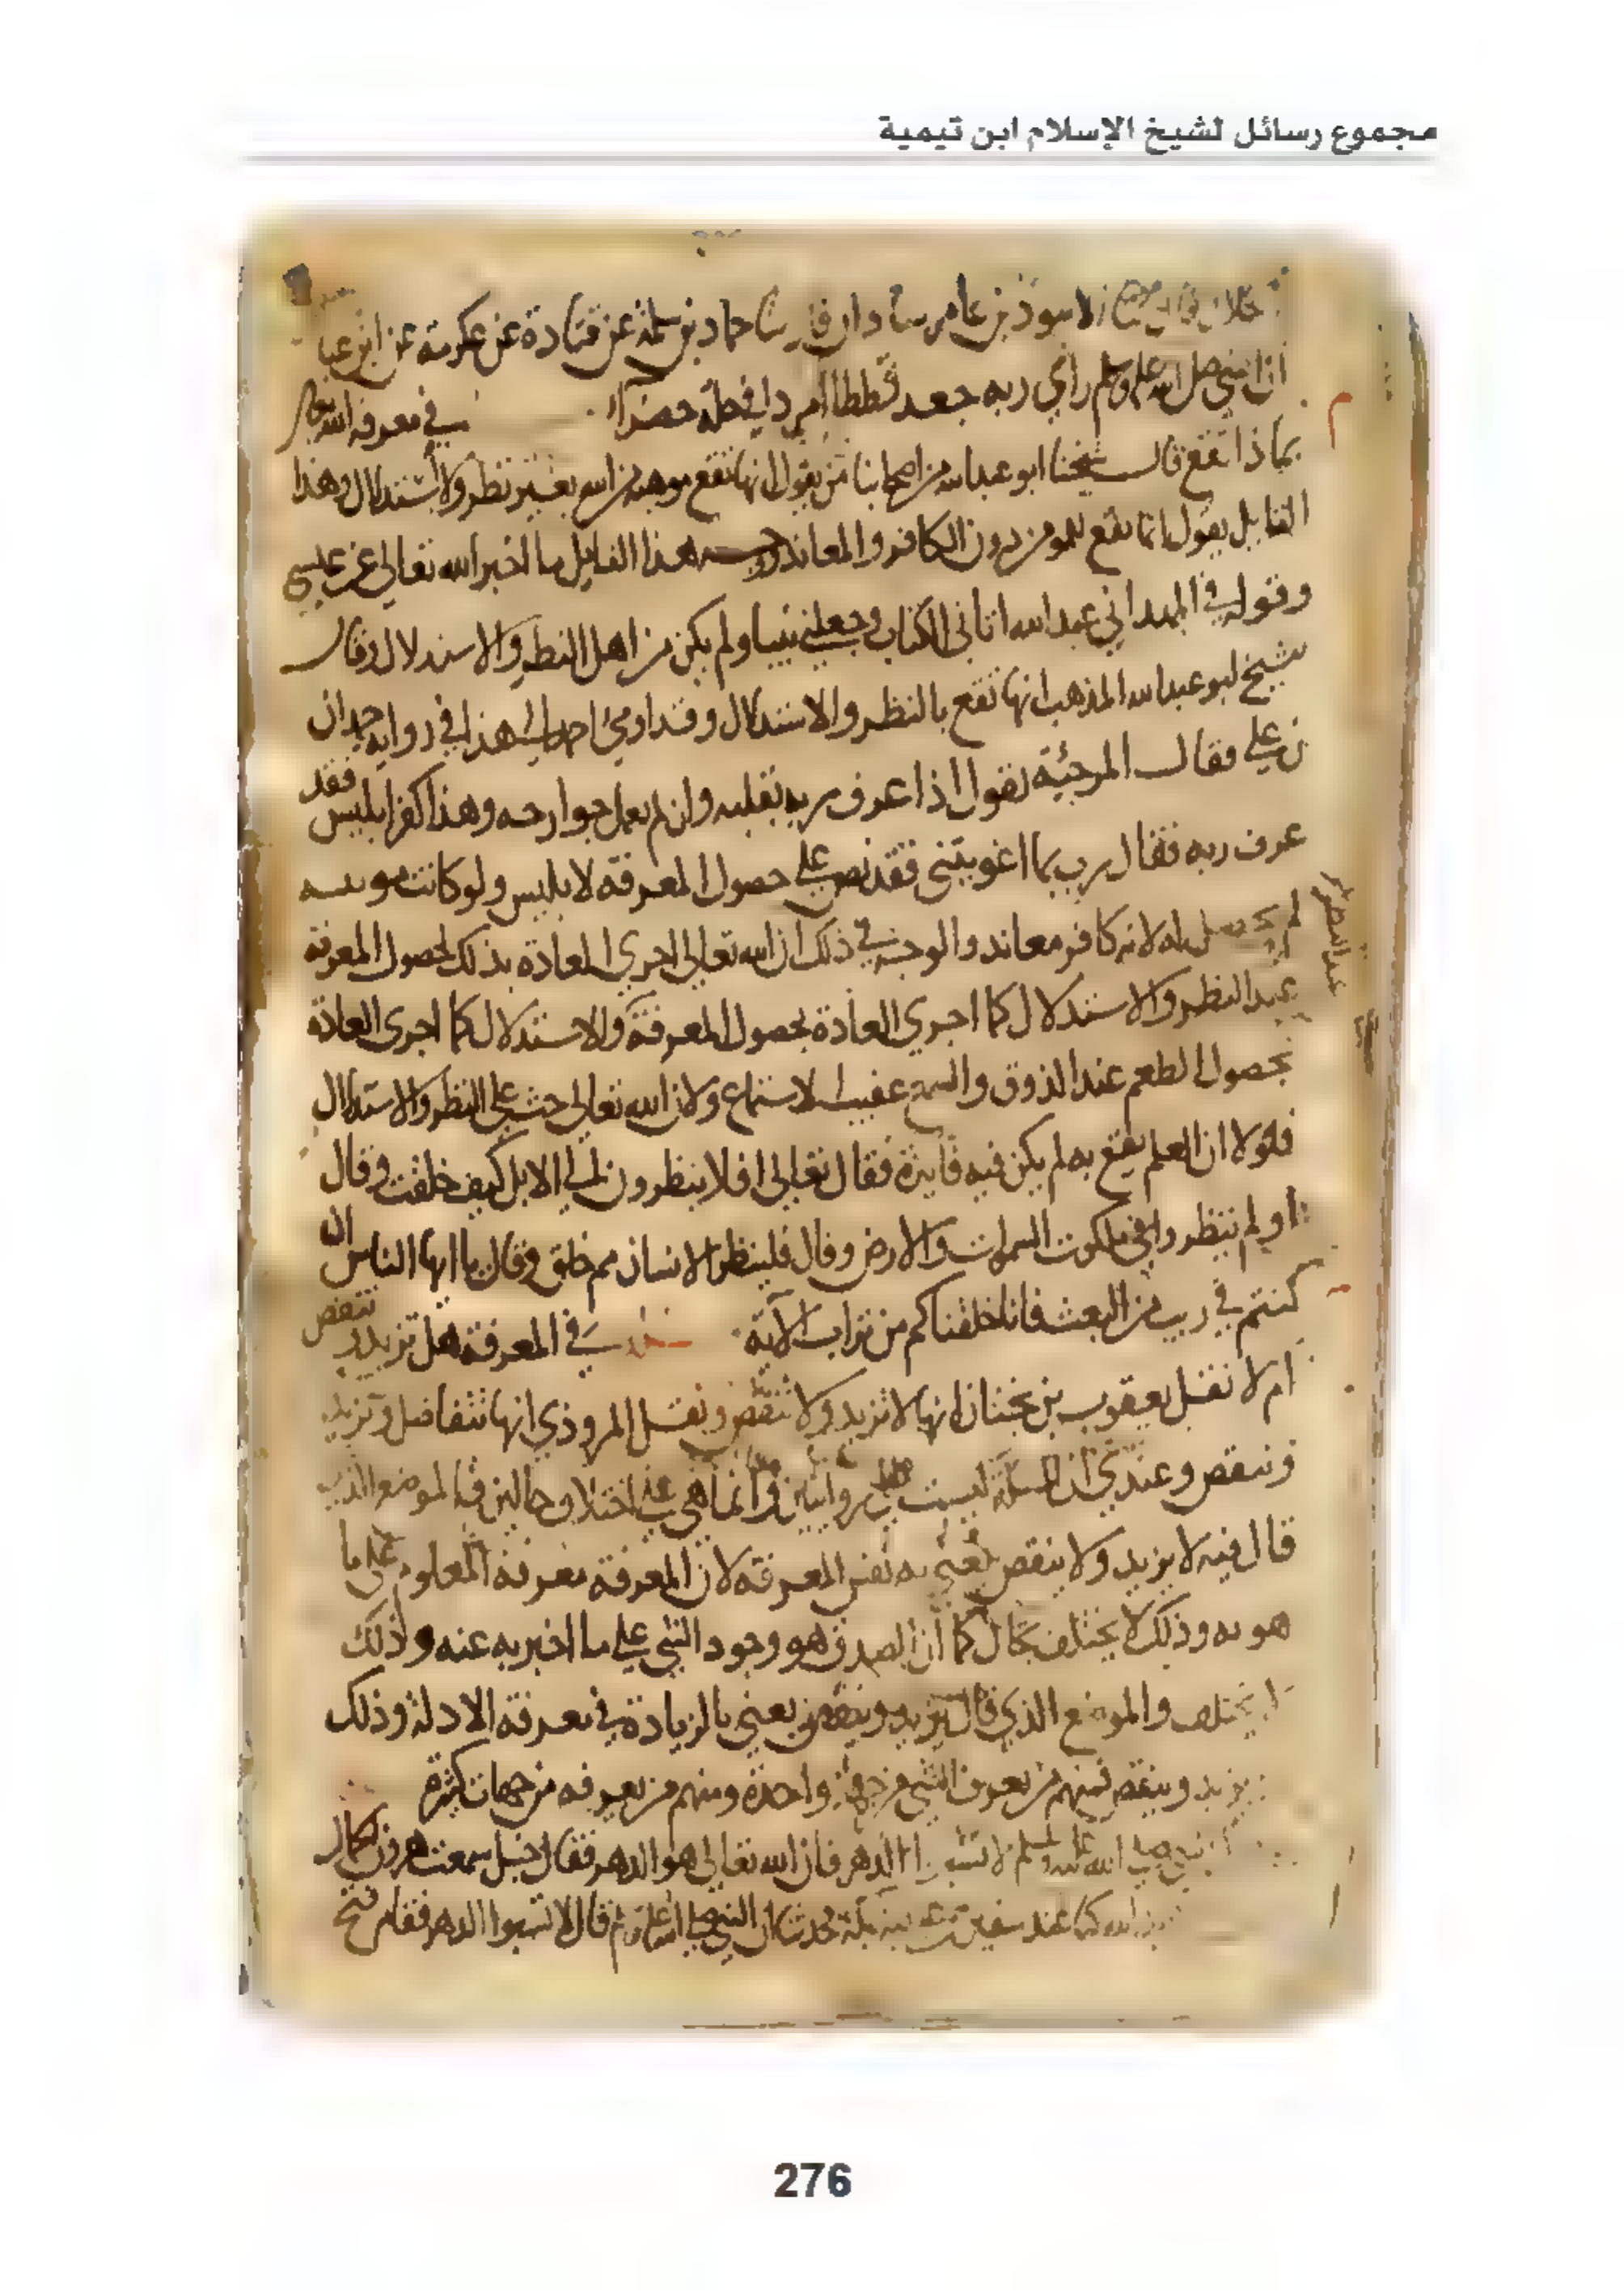 مجموع رسائل لشيخ الإسلام ابن تيمية
الاسود بن عامر سا حماد بن سلمة عن قتادة عن عكرمة عن ابن عبا
ان النبي صلى الله عليه وسلم راي ربه جعد قططا امرد في حلة حضرا في معرفة الله تعالى
بماذا تقع قال شيخنا ابو عبد الله من اصحابنا من يقول انها تقع موهبة من الله بغير نظر ولا استدلال وهذا
القايل يقول انما تقع للمومن دون الكافر والمعاند هذا القايل ما اخبر الله تعالى عن عيسى
وقوله في المهد اني عبد الله اتاني الكتاب وجعلني نبيا ولم يكن من اهل النظر والاستدلال وقال
شيخ ابو عبد الله المذهب انها تقع بالنظر والاستدلال وقد اومئ احمد الى هذا في رواية حمدان
بن علي فقال المرجئة تقول اذا عرف ربه بقلبه وان لم يعمل جوارحه وهذا كفر ابليس فقد
عرف ربه فقال رب بما اغويتني فقد نص على حصول المعرفة لابليس ولو كانت موهبة
لم تحصل له لانه كافر معاند والوجه في ذلك ان الله تعالى اجرى العادة بذلك لحصول المعرفة
عند النظر والاستدلال كما اجري العادة بحصول المعرفة والاستدلال كما اجرى العادة
عند النظر
بحصول الطعم عند الذوق والسمع عقيب الاستماع ولان الله تعالى حث على النظر والاستدلال
فلولا ان العلم يقع به لم يكن فيه فايدة فقال تعالى افلا ينظرون الى الابل كيف خلقت وقال
او لم ينظروا في ملكوت السموات والارض وقال فلينظر الانسان مم خلق وقال يا ايها الناس ان
كنتم في ريب من البعث فانا خلقناكم من تراب الآية في المعرفة هل تزيد وتنقص
ام لا نقل يعقوب بن بختان انها لا تزيد ولا تنقص ونقل المروذي انها تتفاضل وتزيد
وتنقص وعندي ان المسلة ليست على روايتين وانما هي على اختلاف حالين فالموضع الذي
قال فيه لا يزيد ولا ينقص يعني به نفس المعرفة لان المعرفة معرفة المعلوم على ما
هو به وذلك لا يختلف بحال كما ان الصدق هو وجود الشي على ما اخبر به عنه وذلك
لا يختلف والموضع الذي قال يزيد وينقص يعني بالزيادة في معرفة الادلة وذلك
يزيد وينقص فمنهم من يعرف الشي من جهة واحدة ومنهم من يعرفه من جهات كثيرة
النبي صلى الله عليه وسلم لا تسبوا الدهر فان الله تعالى هو الدهر فقال حنبل سمعت هرون الحمال
كنا عند سفين بن عيينة بمكة فحدثنا ان النبي صلى الله عليه وسلم قال لا تسبوا الدهر فقام فتح
276